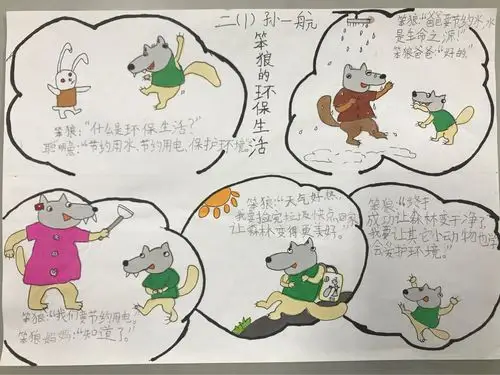 二(1) 孙一航
笨狼的环保生活
笨狼:“什么是环保生活?”
聪明兔:“节约用水、节约用电、保护环境。”
笨狼:“爸爸要节约水,水
是生命之源!”
笨狼爸爸:“好的。”
笨狼:“我们要节约用电。”
笨狼妈妈:“知道了。”
笨狼:“天气好热,
我要捡完垃圾快点回家
让森林变得更美好。”
笨狼:“终于
成功让森林变干净了,
我要让其它小动物也
去爱护环境。”